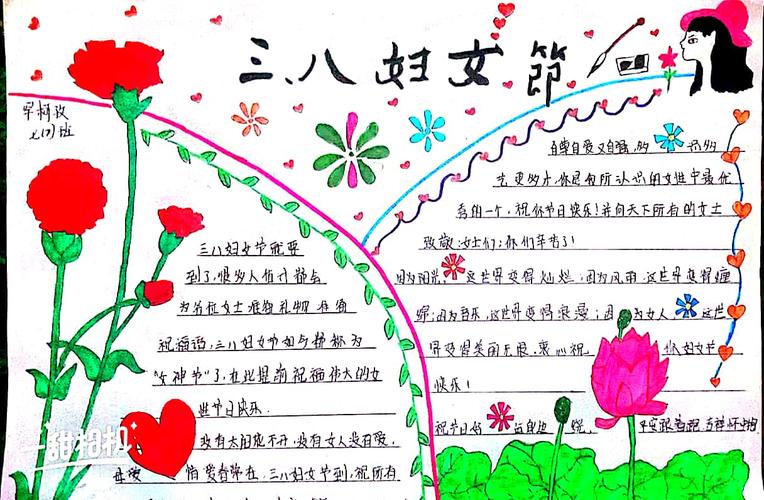 三、八妇女節
七(7)班
三八妇女节就要
到了,很多人估计都会
为各位女士准备礼物准备
祝福语,三八妇女节如今被称为
"女神节"了,在此提前祝福伟大的女
性节日快乐.
没有太阳花不开,没有女人没有爱,
母爱
三八妇女节到,祝所有
自尊自爱又自强,的
艺更多才,你是我所认识的女性中最优
秀的一个,祝你节日快乐!并向天下所有的女士
致敬:女士们:你们辛苦了!
因为阳光,这世界变得灿烂;因为风雨,这世界变得缠
绵;因为音乐,这世界变得浪漫;因为女人 这世
界变得美丽无限,衷心祝 你妇女节
快乐!
祝节日好 绕,
甜相机